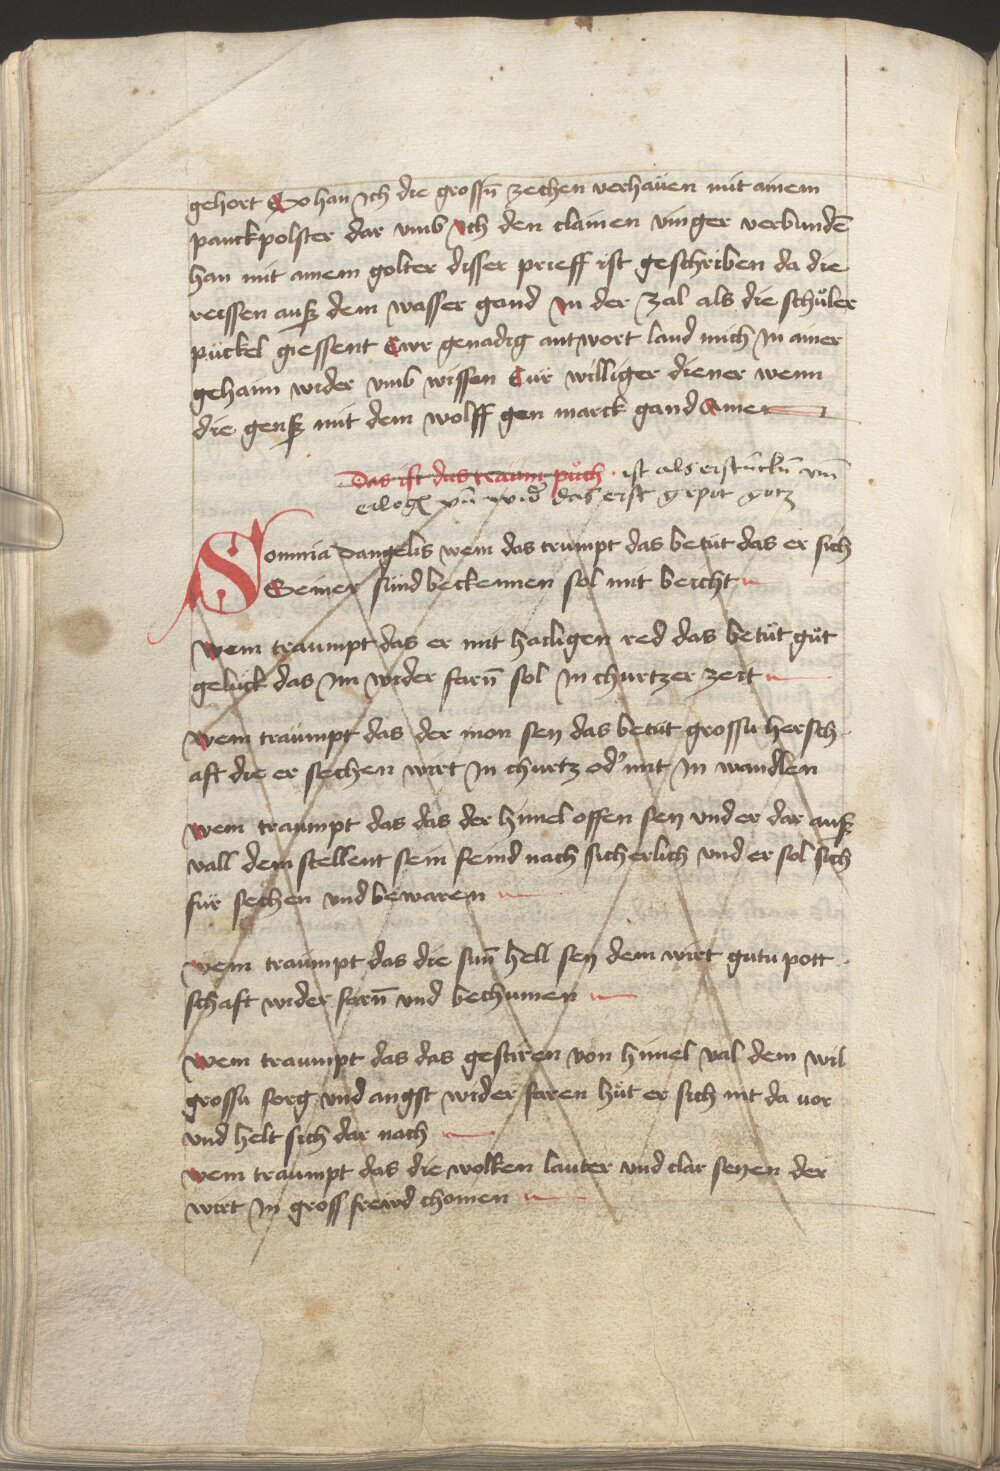 gehort So han Ich die grossn̄ zechen verhaůen mit ainem
panckpolster dar vmb Ich den clainen vinger verbundē
han mit ainem golter disser prieff ist geschriben da die
reissen auß dem wasser gand In der zal als die schůler
pückel giessent Ewr genadig antwort land mich In ainer
gehaim wider vmb wissen Eür williger diener wenn
die genß mit dem wolff gen marck gand Amen
Das ist das traum půch · ist als erstunckn̄ vnn̄
erlogn vn̄ wid̄ das erst gepot gotz
Somnia dangelis wem das trumpt das betüt das er sich
Seiner sünd beckennen sol mit beicht
Wem traumpt das er mit hailigen red das betüt gůt
gelück das Im wider farn̄ sol In churtzer zeit
Wem traumpt das der mon sey das betüt grossu hersch
aft die er sechen wirt In churtz od' mit In wandlen
Wem traumpt das das der himel offen sey vnd er dar auß
vall dem stellent sein feind nach sicherlich vnd er sol sich
für sechen vnd bewaren
Wem traumpt das die sun̄ hell sey dem wirt gutu pott
schaft wider farn̄ vnd bechumen
Wem traumpt das das gestiren von himel val dem wil
grossu sorg vnd angst wider faren hüt er sich nit da vor
vnd helt sich dar nach
Wem traumpt das die wolken lauter vnd clar seyen der
wirt In gross frewd chomen